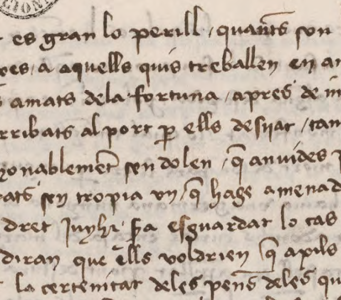 es gran lo perill / quants son
oes / a aquells quis treballen en am
amats dela fortuna / apres de in
rribats al port p ells desijat / tan
onablement sen dolen / q̃ anvides
ats sen tropia vn / q̃ hage amenad
dret Juyhi p̃a esguardat lo cas
diran que ells voldrien / q̃ apils
la certenitat deles pens deles qu